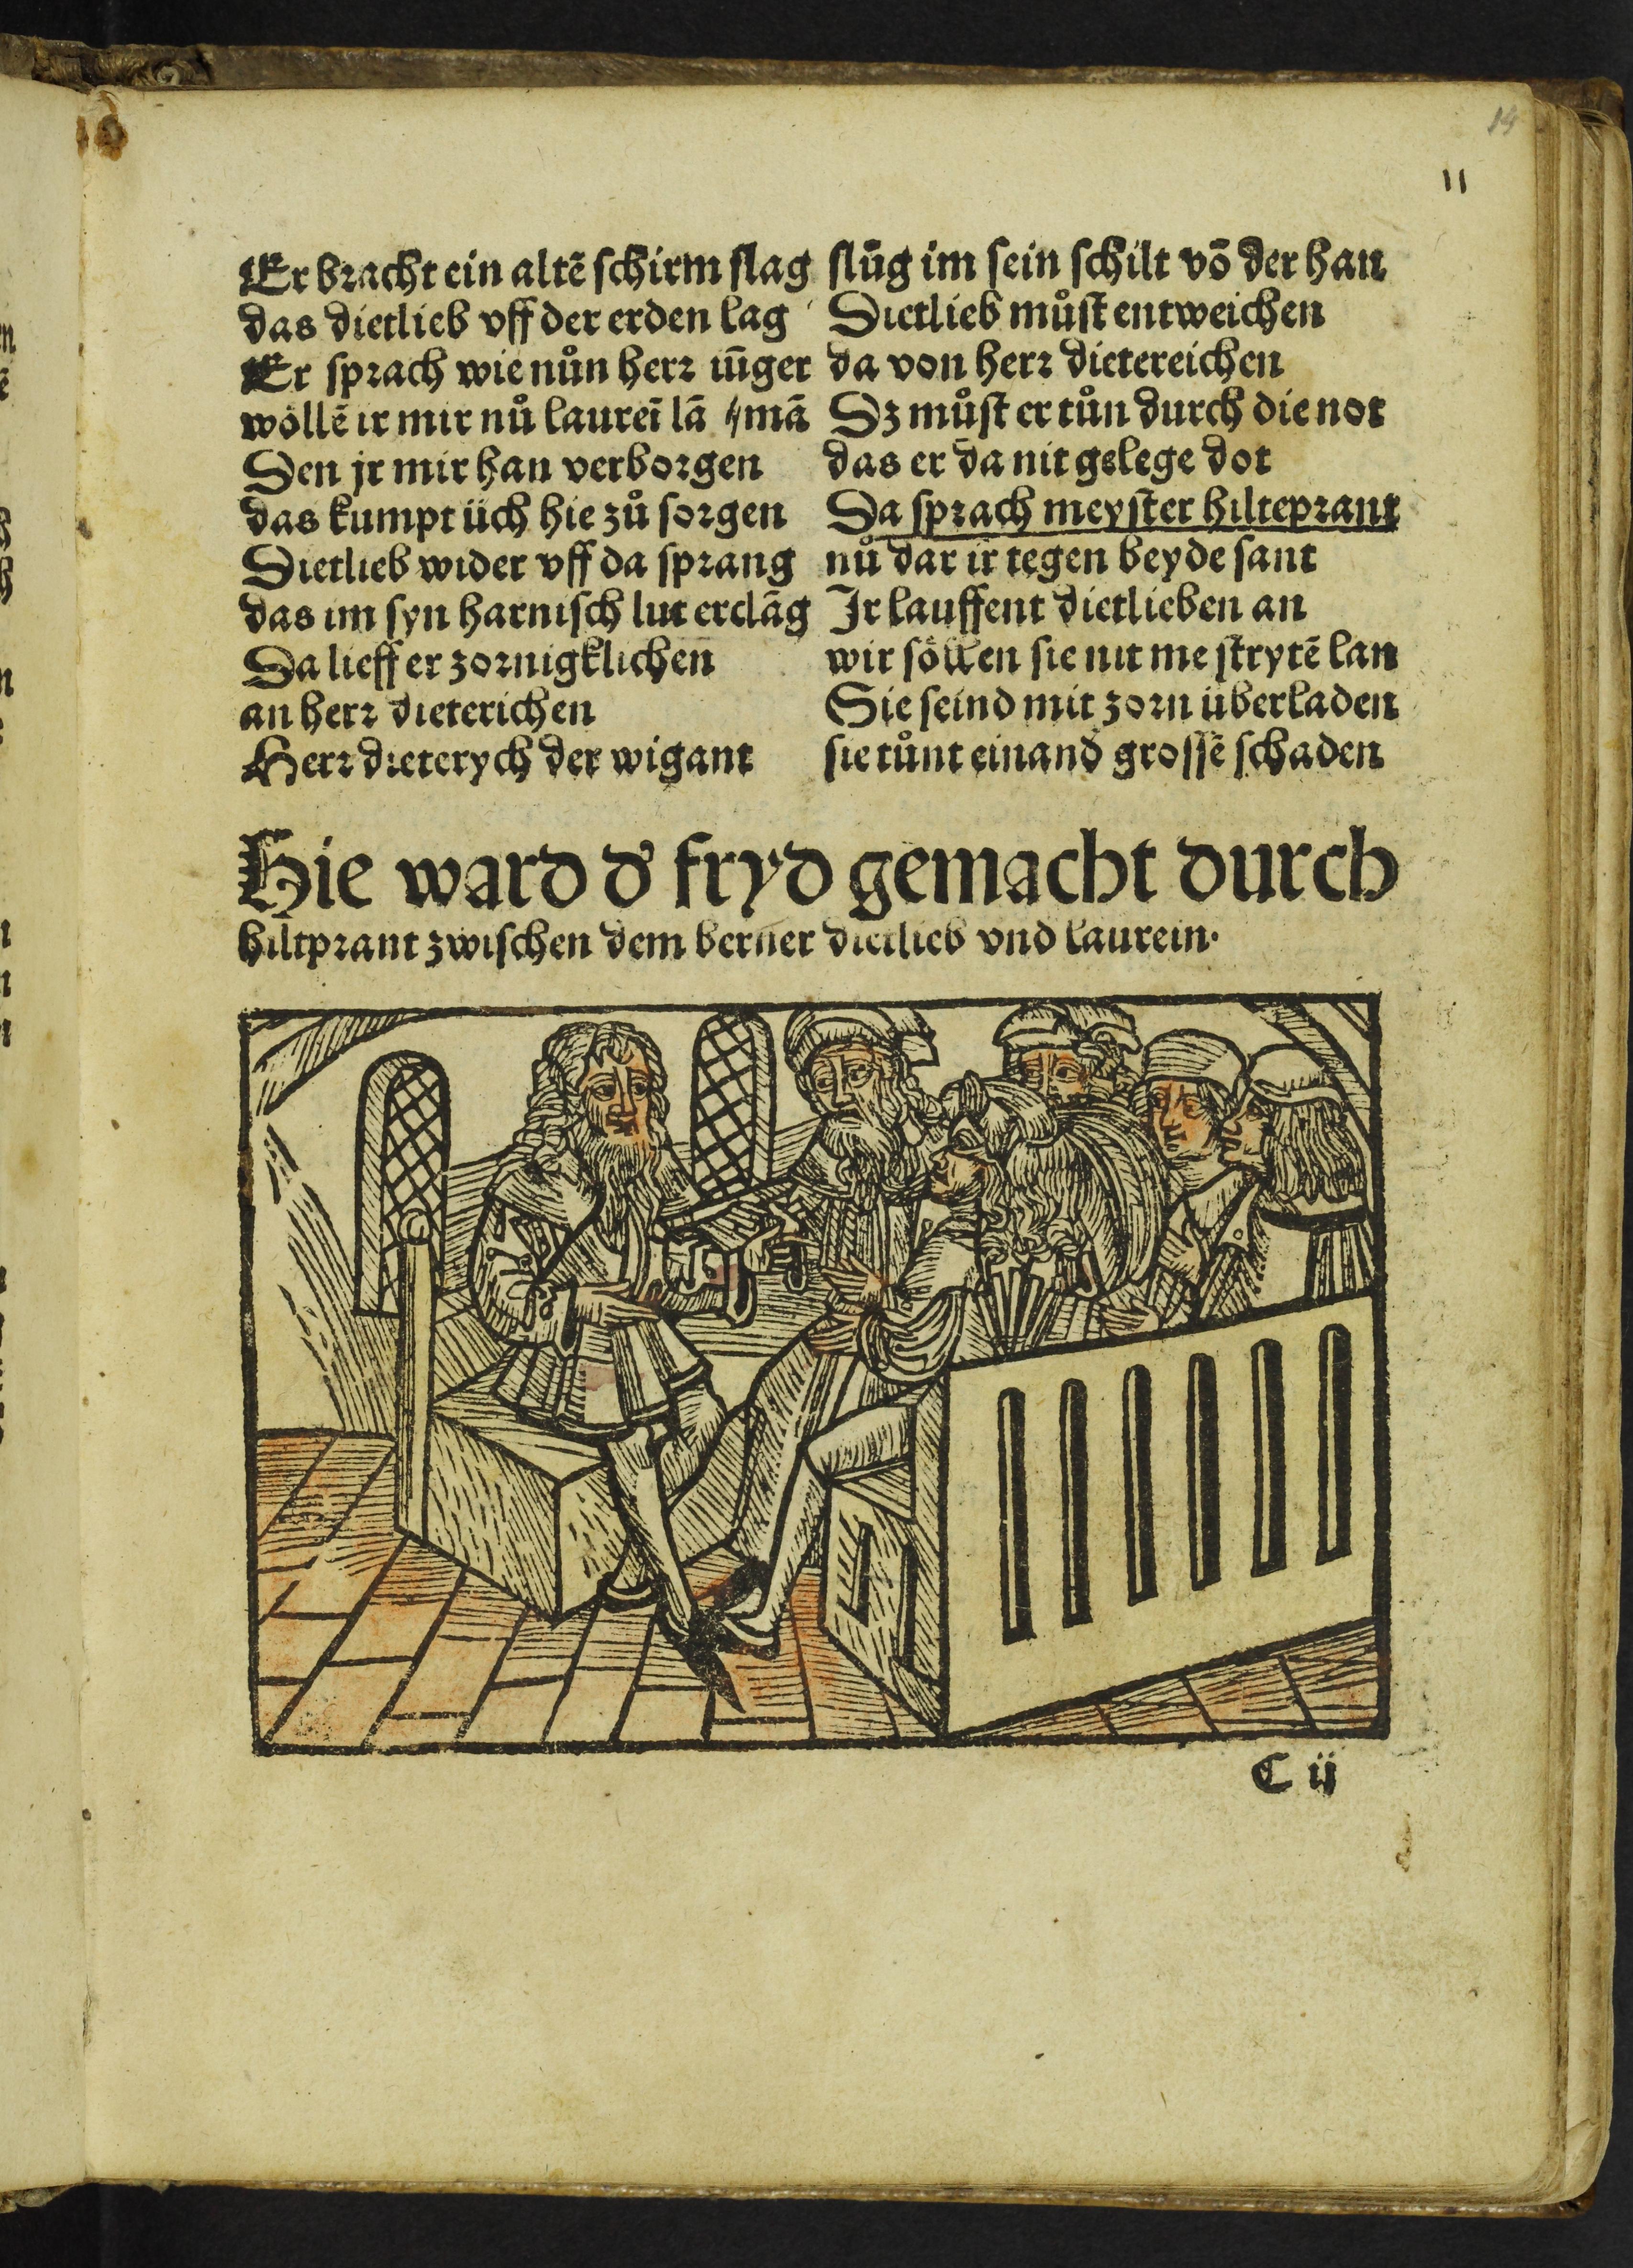 14
11
Er bracht ein altē schirm slag
das dietlieb vff der erden lag
Er sprach wie nůn herr iūger
wöllē ir mir nů laurei̅ lā //mā
Den jr mir han verborgen
das kumpt üch hie zů sorgen
Dietlieb wider vff da sprang
das im syn harnisch lut erclāg
Da lieff er zornigklichen
an herr dieterichen
Herr dieterych der wigant
slůg im sein schilt vō der han
Dietlieb můst entweichen
da von herr dietereichen
Dz můst er tůn durch die not
das er da nit gelege dot
Da sprach meyster hilteprant
nů dar ir tegen beyde sant
Ir lauffent dietlieben an
wir söllen sie nit me strytē lan
Sie seind mit zorn überladen
sie tůnt einand̓ grossē schaden
Hie ward d̓ fryd gemacht durch
hiltprant zwischen dem berner dietlieb vnd laurein·
C ij